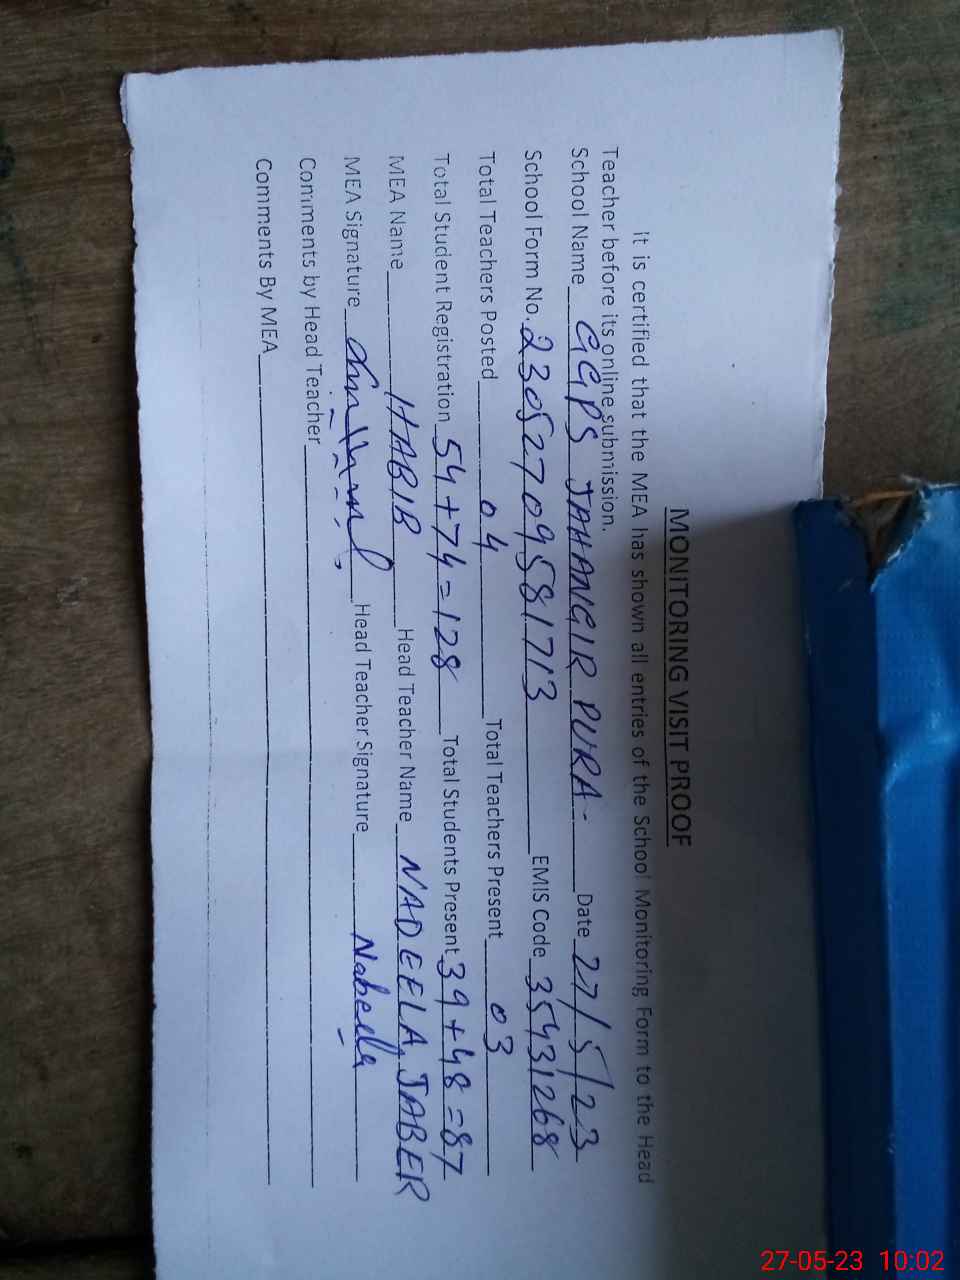 MONITORING VISIT PROOF
It is certified that the MEA has shown all entries of the School Monitoring Form to the Head
Teacher before its online submission.
School Name GGPS JAHANGIR PURA- Date 27/5/23
School Form No. 23052709581713 EMIS Code 35431268
Total Teachers Posted 04 Total Teachers Present 03
Total Student Registration 54+74=128 Total Students Present 39+48=87
MEA Name HABIB Head Teacher Name NADEELA JABER
MEA Signature Head Teacher Signature Nabeela
Comments by Head Teacher
Comments By MEA
27-05-23 10:02